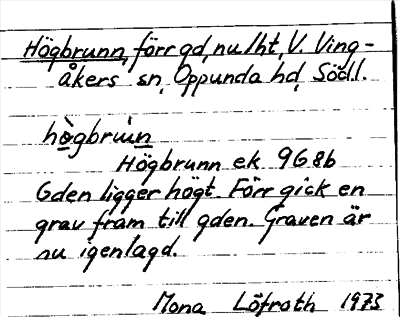 Högbrunn, förr gd, nu lht, V. Ving-
åkers sn, Oppunda hd, Södl.
hògbruı̀n
Högbrunn ek. 9G8b
Gden ligger högt. Förr gick en
grav fram till gden. Graven är
nu igenlagd.
Mona Löfroth 1973